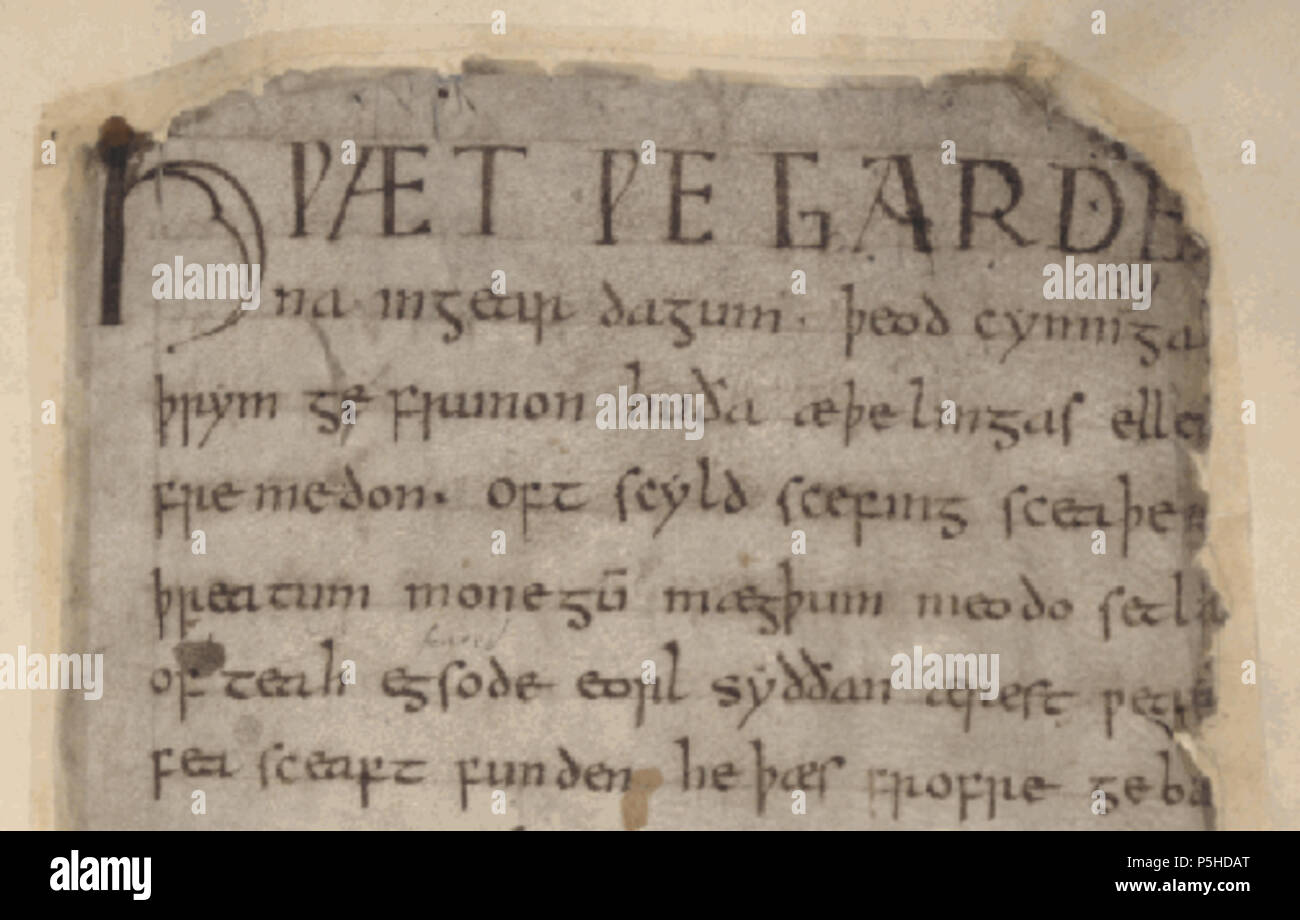 HǷÆT ǷE GARDE
na ingear dagum. þeod cyninga
þrym ge frunon huða æþelingas elle
fremedon. oft scyld scefing sceaþe
þreatum monegū mægþum meodo setla
of teah egsode eorl syððan ærest ƿear
fea sceaft funden he þæs frofre geba
alamy
Image ID: P5HDAT
www.alamy.com